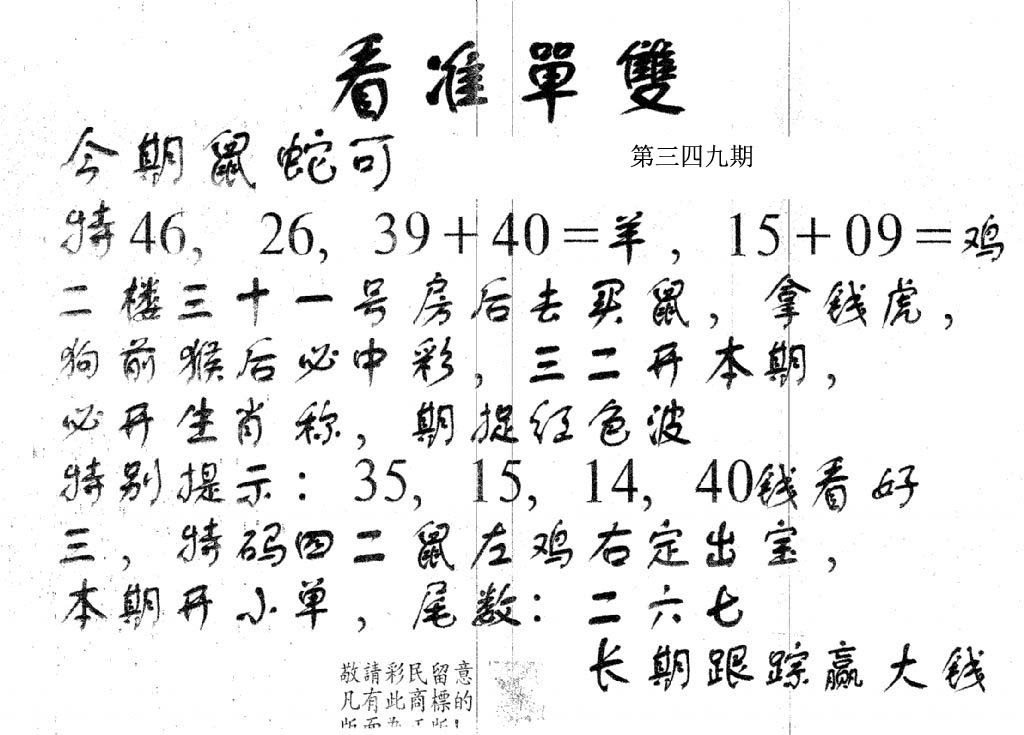 看准單雙
今期鼠蛇可
第三四九期
特46, 26, 39+40=羊, 15+09=鸡
二楼三十一号房后去买鼠, 拿钱虎,
狗前猴后必中彩, 三二开本期,
必开生肖称, 期捉红色波
特别提示: 35, 15, 14, 40钱看好
三, 特码四二鼠左鸡右定出宝,
本期开小单, 尾数: 二六七
长期跟踪赢大钱
敬請彩民留意
凡有此商標的